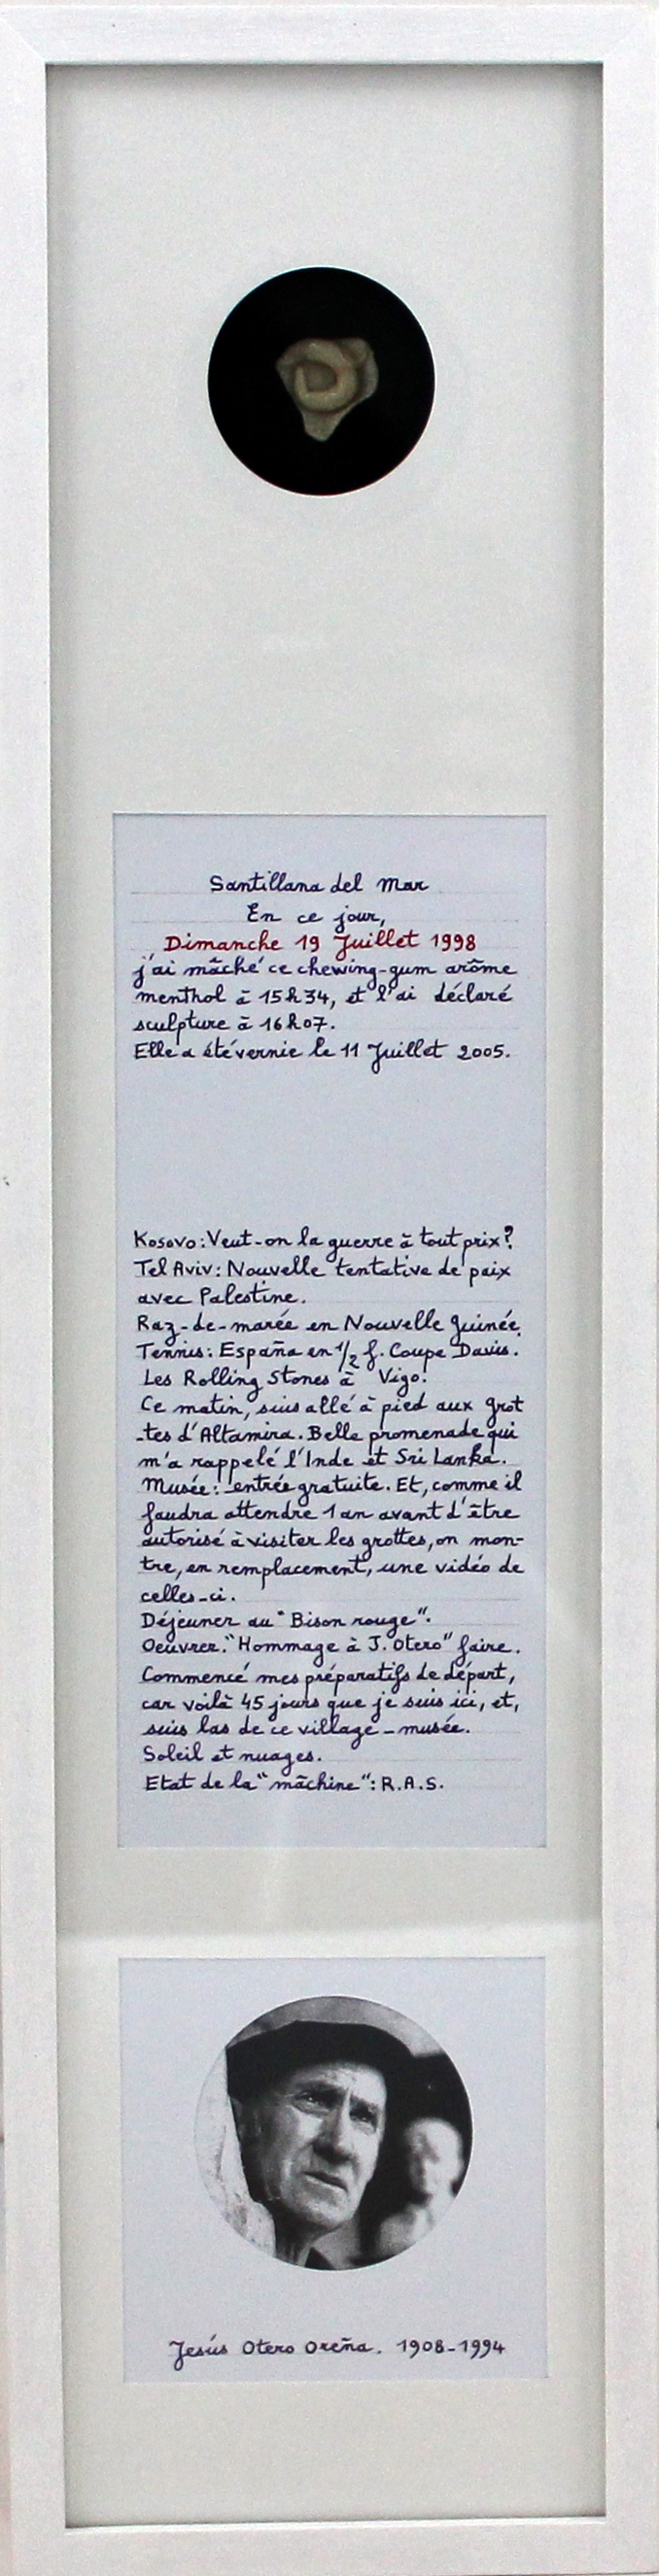 Santillana del Mar
En ce jour,
Dimanche 19 Juillet 1998
j'ai mâché ce chewing-gum arôme
menthol à 15h34, et l'ai déclaré
sculpture à 16h07.
Elle a été vernie le 11 Juillet 2005.
Kosovo: Veut-on la guerre à tout prix?
Tel Aviv: Nouvelle tentative de paix
avec Palestine.
Raz-de-marée en Nouvelle Guinée.
Tennis: España en 1/2 f. Coupe Davis.
Les Rolling Stones à Vigo.
Ce matin, suis allé à pied aux grot
-tes d'Altamira. Belle promenade qui
m'a rappelé l'Inde et Sri Lanka.
Musée: entrée gratuite. Et, comme il
faudra attendre 1 an avant d'être
autorisé à visiter les grottes, on mon-
tre, en remplacement, une vidéo de
celles-ci.
Déjeuner au "Bison rouge".
Oeuvrer: "Hommage à J. Otero" faire.
Commencé mes préparatifs de départ,
car voilà 45 jours que je suis ici, et,
suis las de ce village-musée.
Soleil et nuages.
Etat de la "mâchine": R.A.S.
Jesús Otero Oreña. 1908-1994